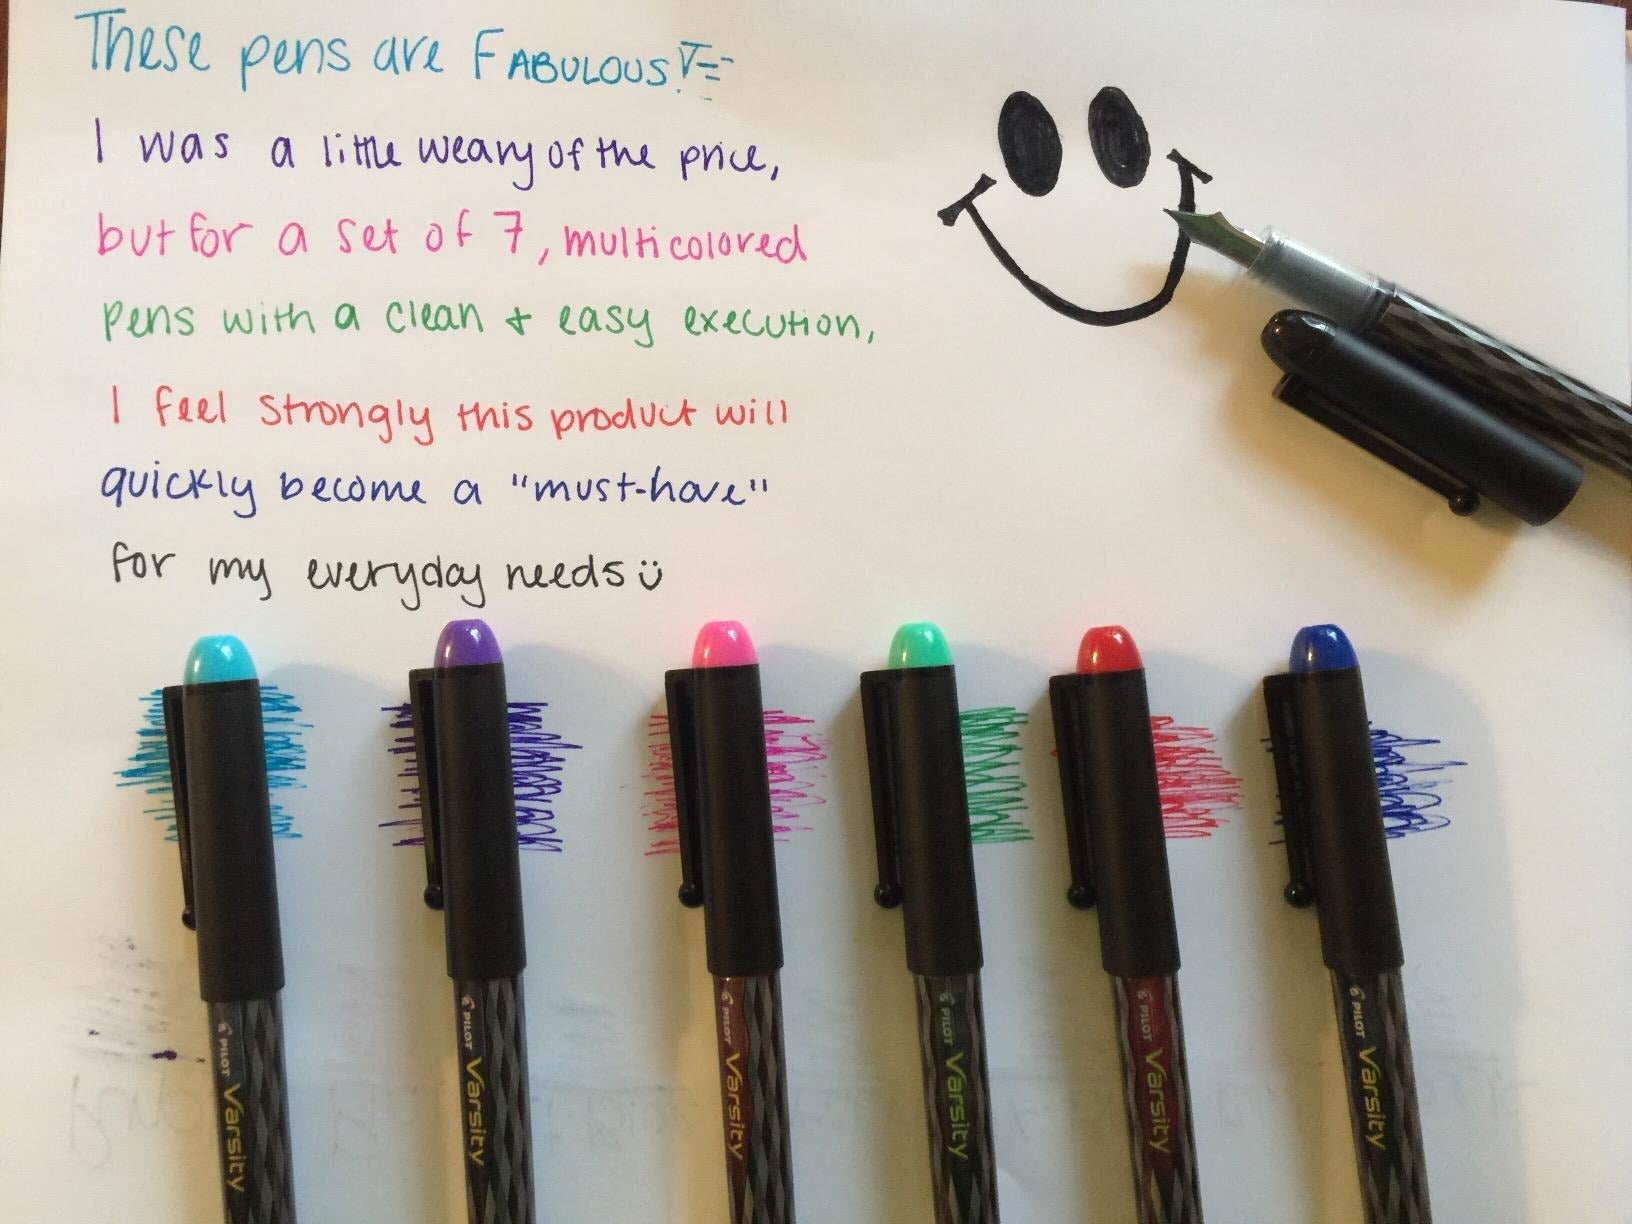 These pens are FABULOUS!
I was a little weary of the price,
but for a set of 7, multicolored
pens with a clean + easy execution,
I feel strongly this product will
quickly become a "must-have"
for my everyday needs
PILOT Varsity
PILOT Varsity
PILOT Varsity
PILOT Varsity
PILOT Varsity
PILOT Varsity